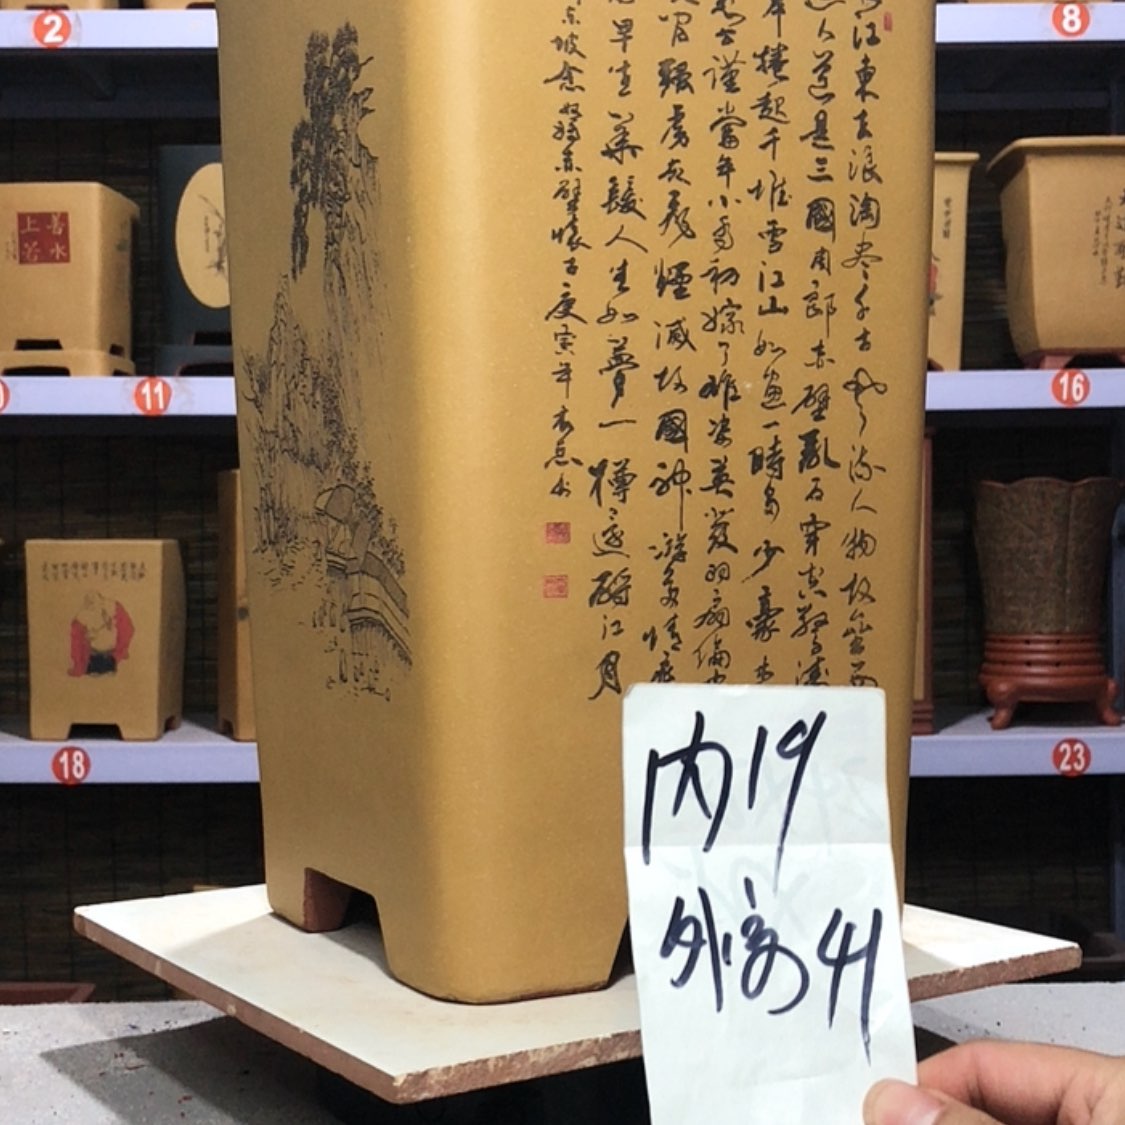 江東去浪淘盡千古風流人物故壘西
人道是三國周郎赤壁亂石穿空驚濤
捲起千堆雪江山如畫一時多少豪
謹當年小喬初嫁了雄姿英發羽扇綸
間強虜灰飛煙滅故國神遊多情
早生華髮人生如夢一樽還酹江月
東坡念奴嬌赤壁懷古庚寅年
2
8
上善
若水
11
16
18
23
内19
外高41